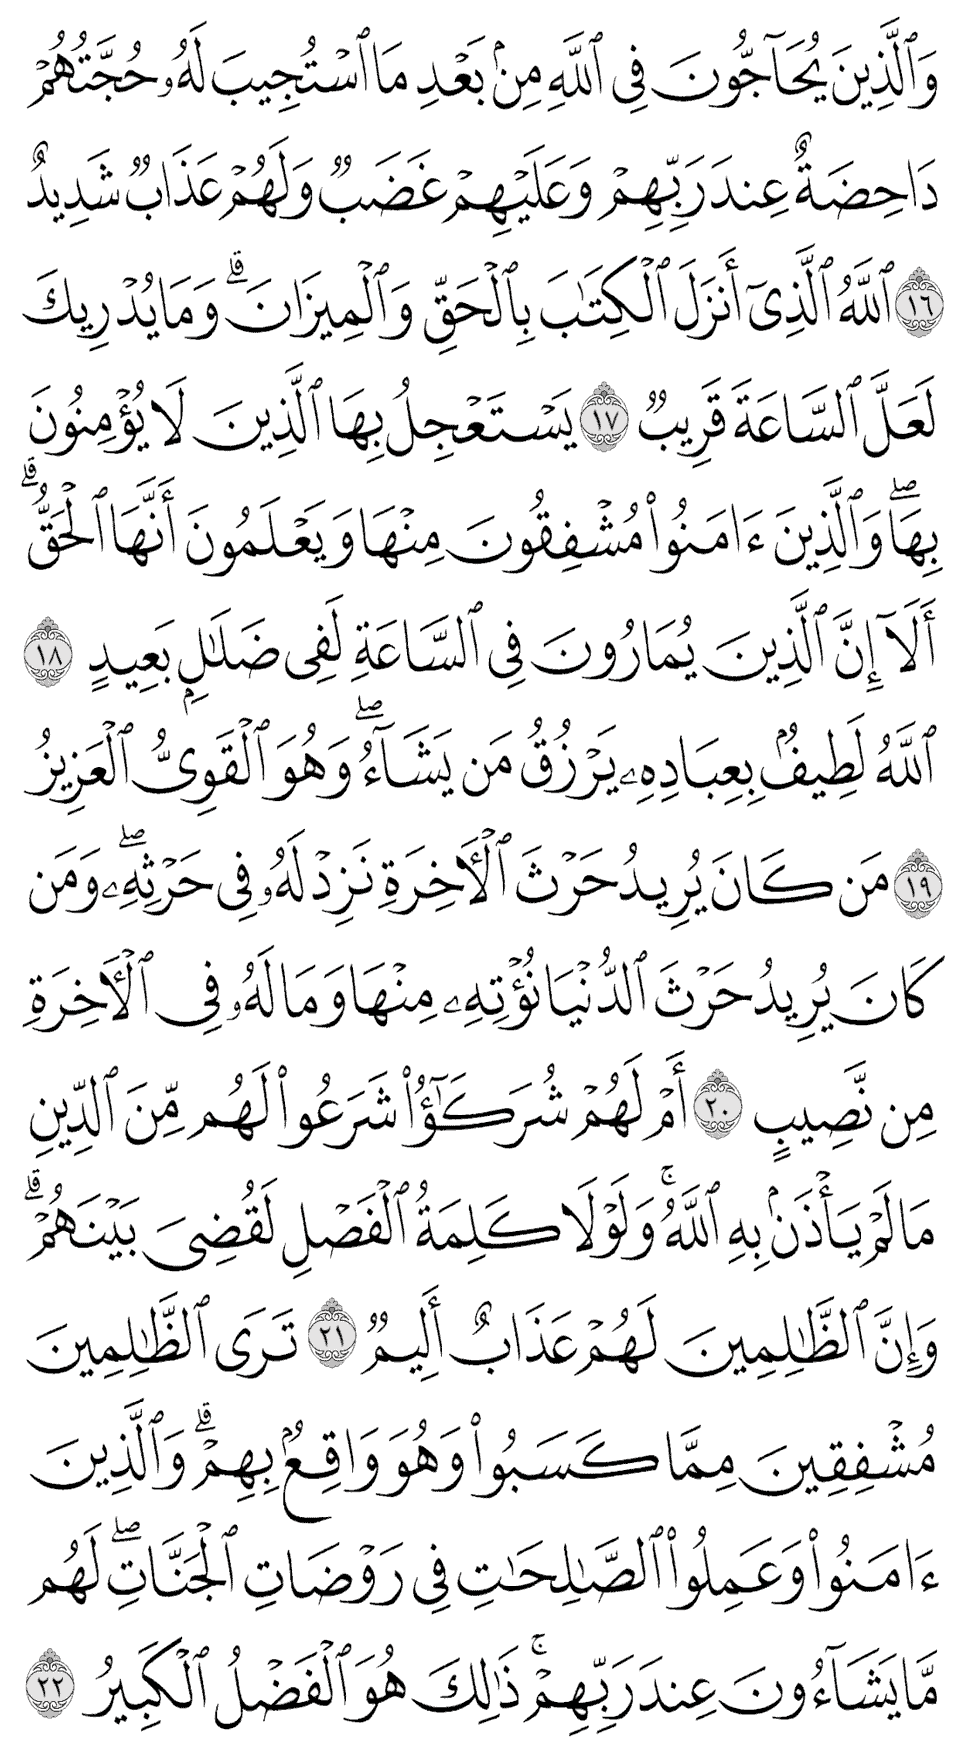 وَٱلَّذِينَ يُحَآجُّونَ فِى ٱللَّهِ مِنۢ بَعْدِ مَا ٱسْتُجِيبَ لَهُۥ حُجَّتُهُمْ
دَاحِضَةٌ عِندَ رَبِّهِمْ وَعَلَيْهِمْ غَضَبٌ وَلَهُمْ عَذَابٌ شَدِيدٌ
١٦ ٱللَّهُ ٱلَّذِىٓ أَنزَلَ ٱلْكِتَٰبَ بِٱلْحَقِّ وَٱلْمِيزَانَ ۗ وَمَا يُدْرِيكَ
لَعَلَّ ٱلسَّاعَةَ قَرِيبٌ ١٧ يَسْتَعْجِلُ بِهَا ٱلَّذِينَ لَا يُؤْمِنُونَ
بِهَا ۖ وَٱلَّذِينَ ءَامَنُوا۟ مُشْفِقُونَ مِنْهَا وَيَعْلَمُونَ أَنَّهَا ٱلْحَقُّ ۗ
أَلَآ إِنَّ ٱلَّذِينَ يُمَارُونَ فِى ٱلسَّاعَةِ لَفِى ضَلَٰلٍۭ بَعِيدٍ ١٨
ٱللَّهُ لَطِيفٌۢ بِعِبَادِهِۦ يَرْزُقُ مَن يَشَآءُ ۖ وَهُوَ ٱلْقَوِىُّ ٱلْعَزِيزُ
١٩ مَن كَانَ يُرِيدُ حَرْثَ ٱلْأَخِرَةِ نَزِدْ لَهُۥ فِى حَرْثِهِۦ ۖ وَمَن
كَانَ يُرِيدُ حَرْثَ ٱلدُّنْيَا نُؤْتِهِۦ مِنْهَا وَمَا لَهُۥ فِى ٱلْأَخِرَةِ
مِن نَّصِيبٍ ٢٠ أَمْ لَهُمْ شُرَكَٰٓؤُا۟ شَرَعُوا۟ لَهُم مِّنَ ٱلدِّينِ
مَا لَمْ يَأْذَنۢ بِهِ ٱللَّهُ ۚ وَلَوْلَا كَلِمَةُ ٱلْفَصْلِ لَقُضِىَ بَيْنَهُمْ ۗ
وَإِنَّ ٱلظَّٰلِمِينَ لَهُمْ عَذَابٌ أَلِيمٌ ٢١ تَرَى ٱلظَّٰلِمِينَ
مُشْفِقِينَ مِمَّا كَسَبُوا۟ وَهُوَ وَاقِعٌۢ بِهِمْ ۗ وَٱلَّذِينَ
ءَامَنُوا۟ وَعَمِلُوا۟ ٱلصَّٰلِحَٰتِ فِى رَوْضَاتِ ٱلْجَنَّاتِ ۖ لَهُم
مَّا يَشَآءُونَ عِندَ رَبِّهِمْ ۚ ذَٰلِكَ هُوَ ٱلْفَضْلُ ٱلْكَبِيرُ ٢٢